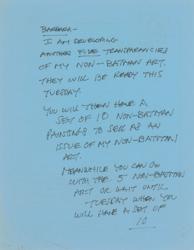 BARBARA-
I AM DEVELOPING
ANOTHER FIVE TRANSPARENCIES
OF MY NON-BATMAN ART.
THEY WILL BE READY THIS
TUESDAY.
YOU WILL THEN HAVE A
SET OF 10 NON-BATMAN
PAINTINGS TO SELL AS AN
ISSUE OF MY NON-BATMAN
ART.
MEANWHILE YOU CAN GO
WITH THE 5 NON-BATMAN
ART OR WAIT UNTIL
TUESDAY WHEN YOU
WILL HAVE A SET OF
10